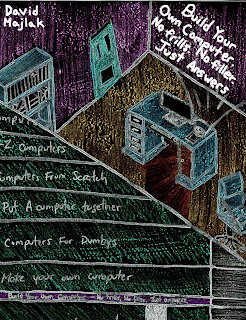 David
Majlak
Build Your
Own Computer
No Frills No Filler
Just Answers
Computers
Computers From Scratch
Put A computer together
Computers For Dumbys
Make your own computer
Build Your Own Computer No Frills, No Filler, Just Answers